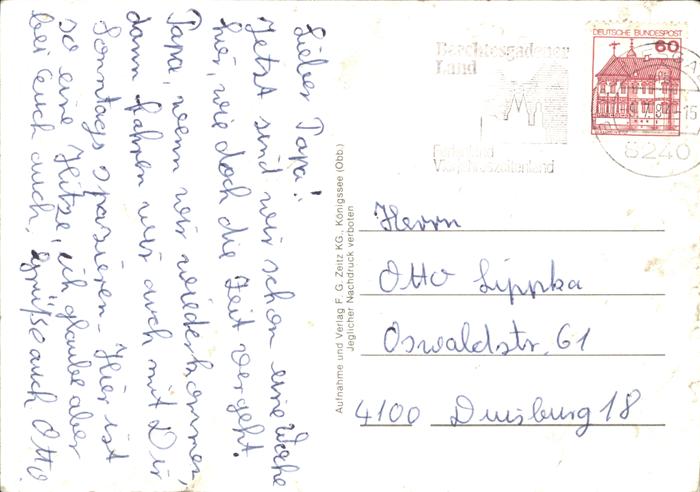 Lieber Papa!
Jetzt sind wir schon eine Woche
hier, wie doch die Zeit vergeht.
Papa, wenn wir wiederkommen,
dann fahren wir auch mit Dir
Sonntags spazieren - Hier ist
so eine Hitze, ich glaube aber
bei Euch auch, grüße auch Otto.
Aufnahme und Verlag F. G. Zeitz KG., Königssee (Obb.)
Jeglicher Nachdruck verboten
Berchtesgadener
Land
Ferienland
Vierjahreszeitenland
DEUTSCHE BUNDESPOST
60
8240
Herrn
Otto Lippka
Oswaldstr. 61
4100 Duisburg 18